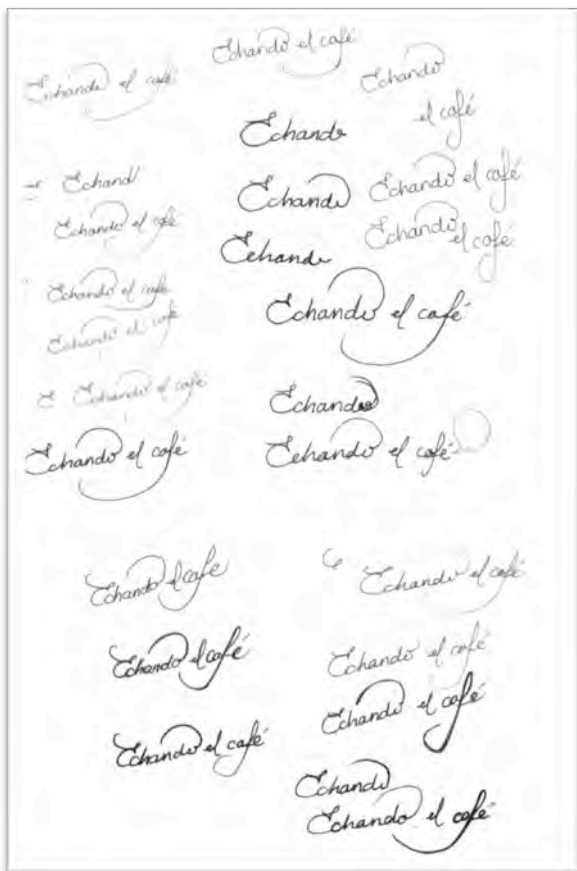 Echando el café
Echando el café
Echando
el café
Echando
Echand
Echando
Echando el café
Echando el café
Echando
el café
Echando
Echando el café
Echando el café
Echando el café
E Echando el café
Echando
Echando el café
Echando el café
Echando el cafe
Echando el café
Echando el café
Echando el café
Echando el café
Echando el café
Echando
Echando el café